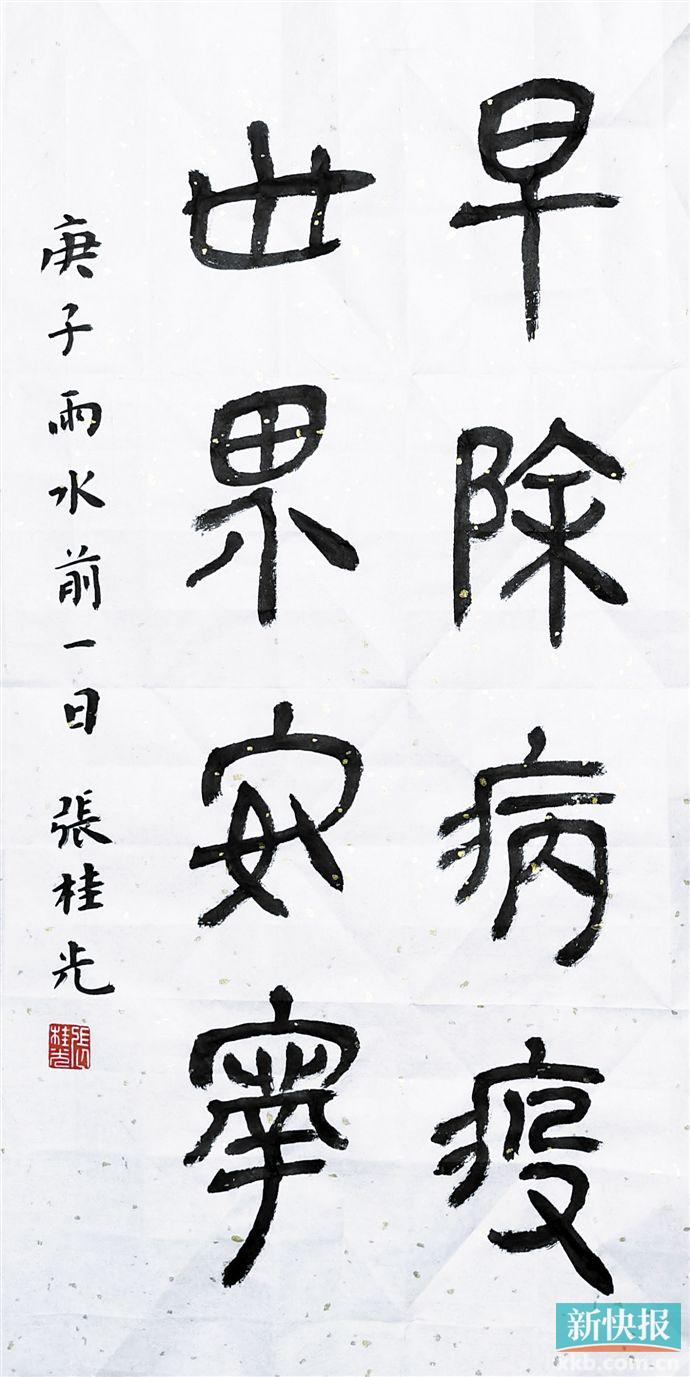 早除病疫
世界安寧
庚子雨水前一日 張桂光
張桂光
新快报
xkb.com.cn